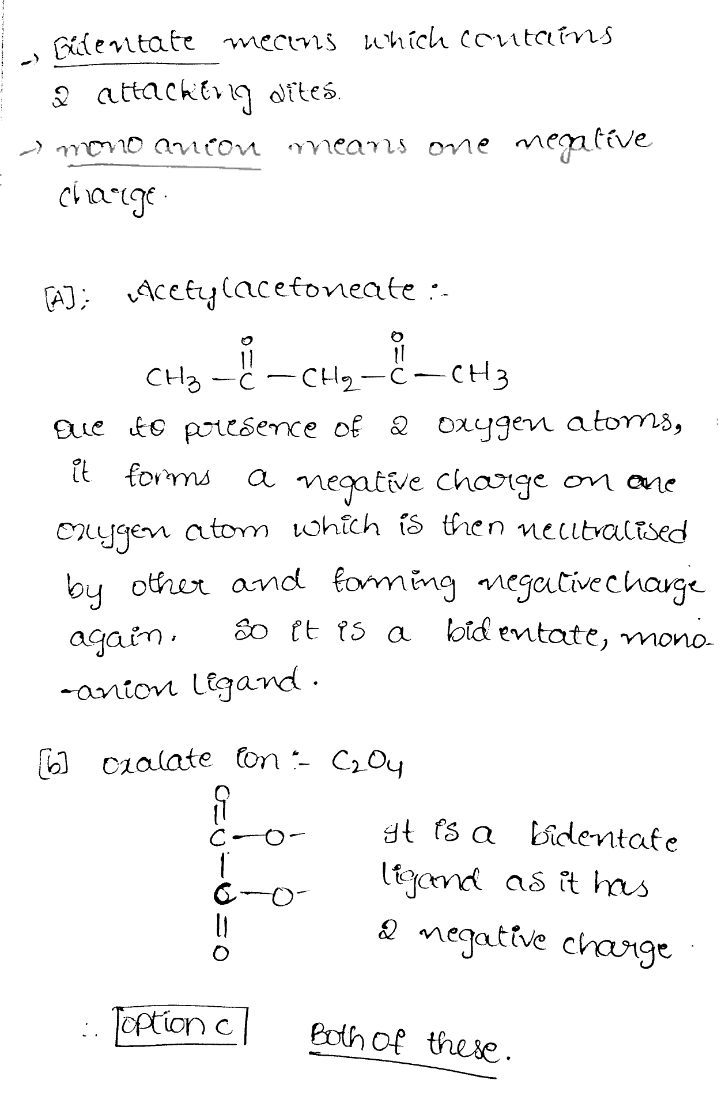 → Bidentate means which contains
2 attacking sites.
→ mono anion means one negative
charge.
[A]; Acetylacetoneate :-
O O
|| ||
CH3 – C – CH2 – C – CH3
Due to presence of 2 oxygen atoms,
it forms a negative charge on one
oxygen atom which is then neutralised
by other and forming negative charge
again. So it is a bidentate, mono-
-anion ligand.
[b] oxalate ion :- C2O4
O
||
C – O- It is a bidentate
|
C – O- ligand as it has
|| 2 negative charge.
O
∴ option c Both of these.